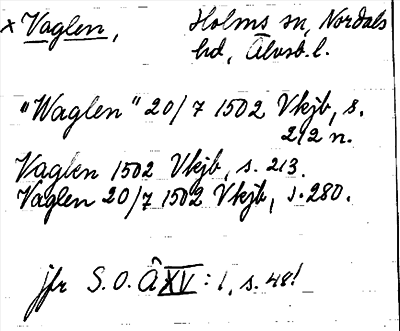 x Vaglen, Holms sn, Nordals
hd, Älvsb. l.
"Waglen" 20/7 1502 Vkjb, s.
212 n.
Vaglen 1502 Vkjb, s. 213.
Vaglen 20/7 1502 Vkjb, s. 280.
jfr S.O. Ä XV: 1, s. 48!